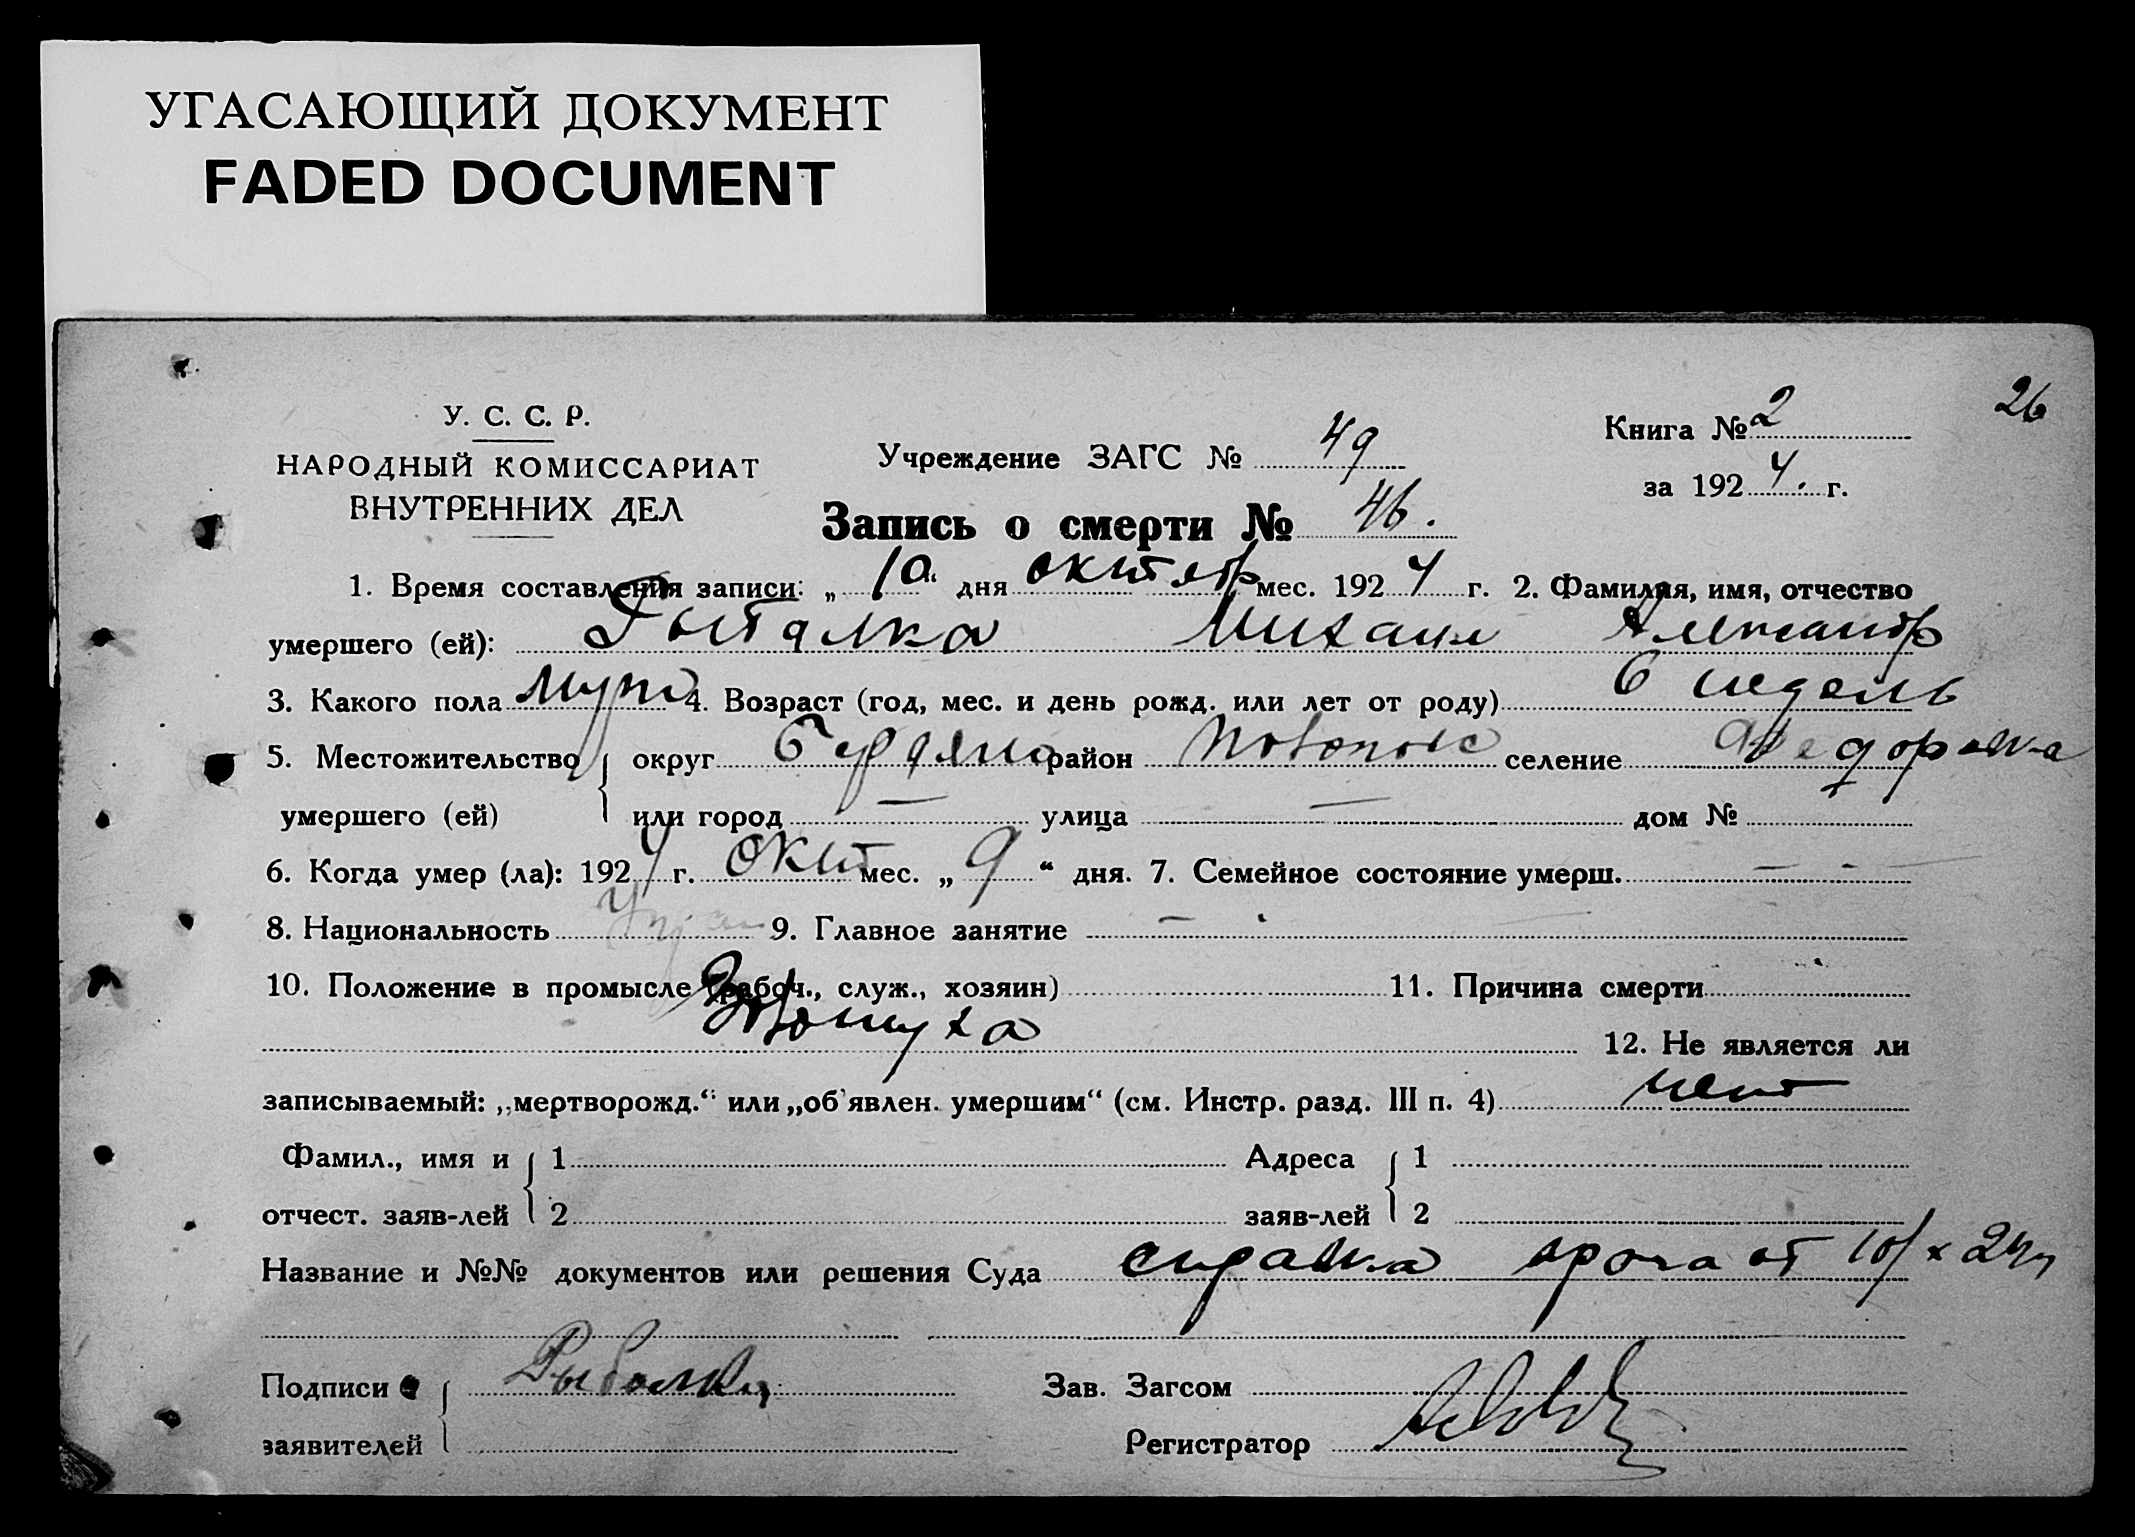 УГАСАЮЩИЙ ДОКУМЕНТ
FADED DOCUMENT
26
У. С. С. Р.
НАРОДНЫЙ КОМИССАРИАТ
ВНУТРЕННИХ ДЕЛ
Учреждение ЗАГС № 49
Книга № 2
за 1924 г.
Запись о смерти № 46.
1. Время составления записи: „10“ дня октябр мес. 1924 г. 2. Фамилия, имя, отчество
умершего (ей): Михаил Александр
3. Какого пола муж 4. Возраст (год, мес. и день рожд. или лет от роду) 6 недель
5. Местожительство округ Бердянс район селение Федоровка
умершего (ей) или город — улица — дом №
6. Когда умер (ла): 1924 г. Окт мес. „9“ дня. 7. Семейное состояние умерш. — -
8. Национальность Украин 9. Главное занятие —
10. Положение в промысле (рабоч., служ., хозяин) 11. Причина смерти
12. Не является ли
записываемый: „мертворожд.“ или „об'явлен. умершим“ (см. Инстр. разд. III п. 4) нет
Фамил., имя и 1 Адреса 1
отчест. заяв-лей 2 заяв-лей 2
Название и №№ документов или решения Суда справка врача от 10/x 24г
Подписи Рыбалка Зав. Загсом
заявителей Регистратор